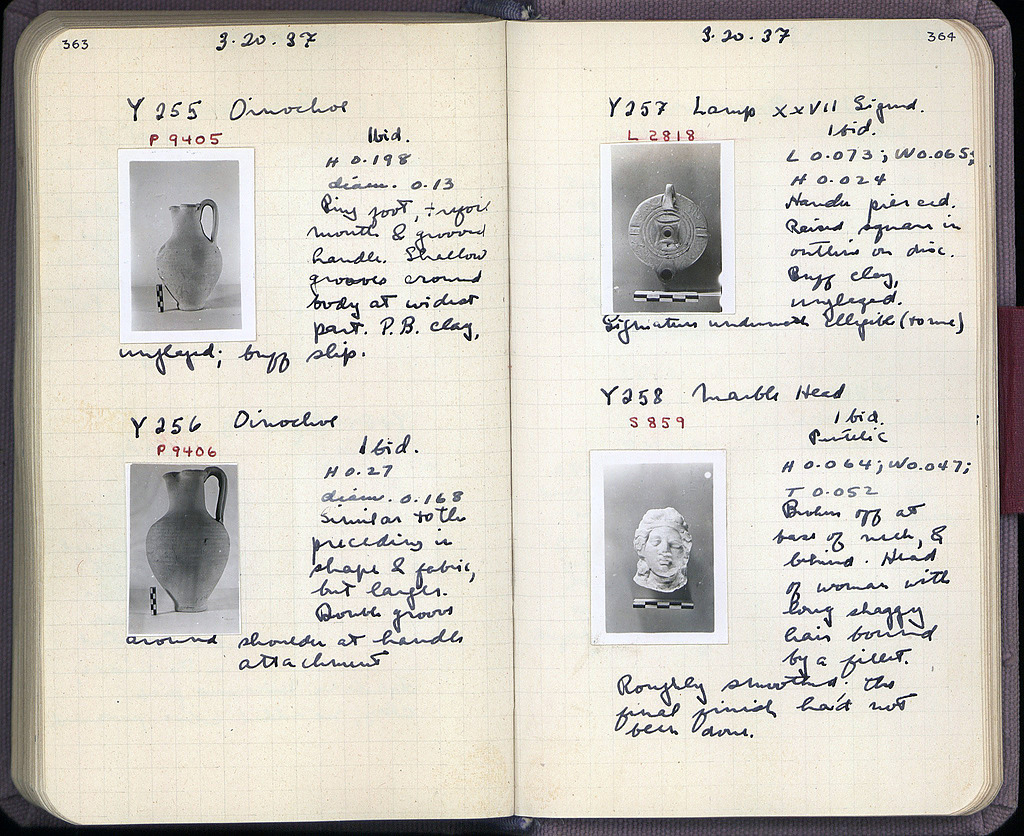 363
3·20·37
Y 255 Oinochoe
P 9405
Ibid.
H 0.198
diam. 0.13
Ring foot, trefoil
mouth & grooved
handle. Shallow
grooves around
body at widest
part. P.B. clay,
unglazed; buff slip.
Y 256 Oinochoe
P 9406
Ibid.
H 0.27
diam. 0.168
Similar to the
preceding in
shape & fabric,
but larger.
Double groove
around shoulder at handle
attachment
3·20·37
364
Y257 Lamp XXVII Signed.
L 2818
Ibid.
L 0.073; W 0.065;
H 0.024
Handle pierced.
Raised square in
outline on disc.
Buff clay,
unglazed.
Signature underneath illegible (to me)
Y258 Marble Head
S 859
Ibid.
Pentelic
H 0.064; W 0.047;
T 0.052
Broken off at
base of neck, &
behind. Head
of woman with
long shaggy
hair bound
by a fillet.
Roughly smoothed: the
final finish had not
been done.